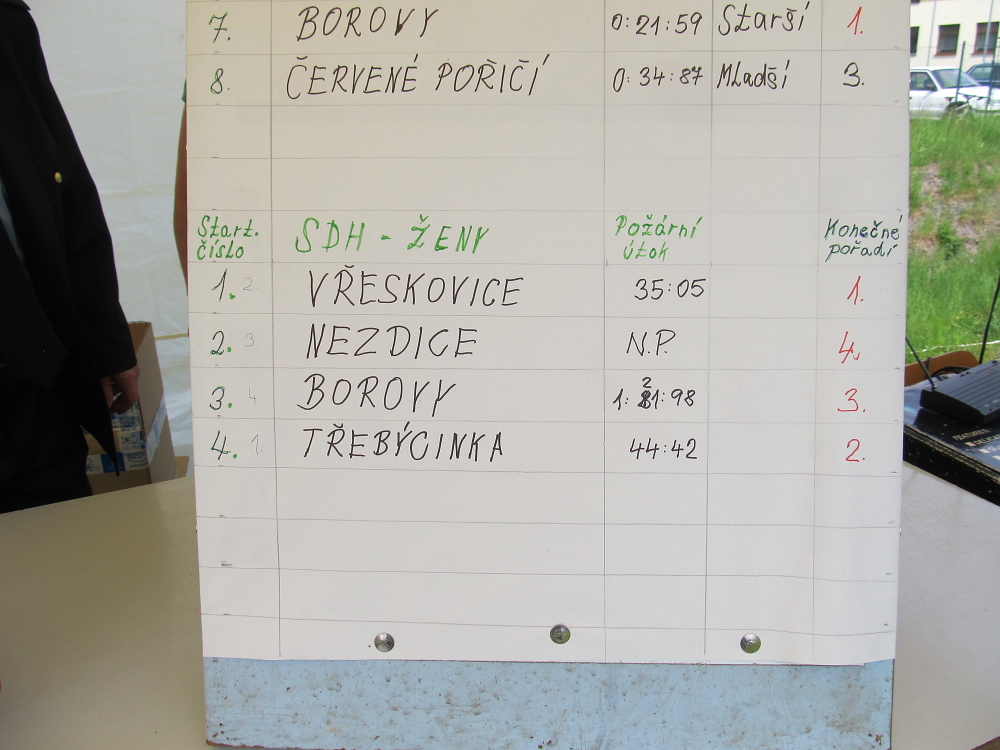 7. BOROVY 0:21:59 Starší 1.
8. ČERVENÉ POŘIČÍ 0:34:87 Mladší 3.
Start. číslo SDH - ŽENY Požární útok Konečné pořadí
1. 2. VŘESKOVICE 35:05 1.
2. 3. NEZDICE N.P. 4.
3. 4. BOROVY 1:21:98 3.
4. 1. TŘEBÝCINKA 44:42 2.